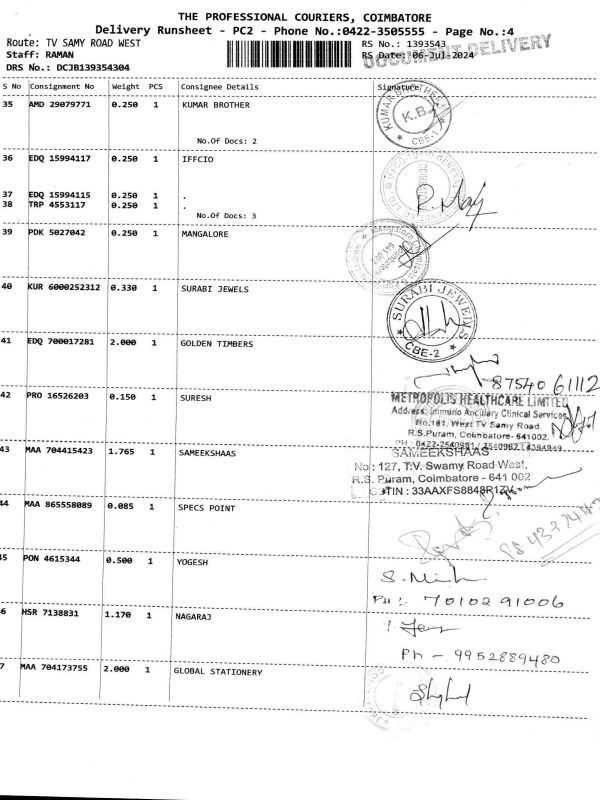 THE PROFESSIONAL COURIERS, COIMBATORE
Delivery Runsheet - PC2 - Phone No.:0422-3505555 - Page No.:4
Route: TV SAMY ROAD WEST RS No.: 1393543
Staff: RAMAN RS Date: 06-Jul-2024
DOCUMENT DELIVERY
DRS No.: DCJB139354304
S No Consignment No Weight PCS Consignee Details Signature
35 AMD 29079771 0.250 1 KUMAR BROTHER
K.B.
CBE-1
No.Of Docs: 2
36 EDQ 15994117 0.250 1 IFFCIO
37 EDQ 15994115 0.250 1 .
38 TRP 4553117 0.250 1 .
No.Of Docs: 3
39 PDK 5027042 0.250 1 MANGALORE
40 KUR 6000252312 0.330 1 SURABI JEWELS
SURABI JEWELS
CBE-2
41 EDQ 700017281 2.000 1 GOLDEN TIMBERS
87540 61112
42 PRO 16526203 0.150 1 SURESH
METROPOLIS HEALTHCARE LIMITED
Address: Immuno Ancillary Clinical Services
No.181, West TV Samy Road
R.S.Puram, Coimbatore- 641002.
43 MAA 704415423 1.765 1 SAMEEKSHAAS
SAMEEKSHAAS
No : 127, T.V. Swamy Road West,
R.S. Puram, Coimbatore - 641 002
GSTIN : 33AAXFS8848R1ZV
44 MAA 865558089 0.085 1 SPECS POINT
45 PON 4615344 0.500 1 YOGESH
PH :- 70102 91006
46 HSR 7138831 1.170 1 NAGARAJ
Ph - 9952889480
47 MAA 704173755 2.000 1 GLOBAL STATIONERY